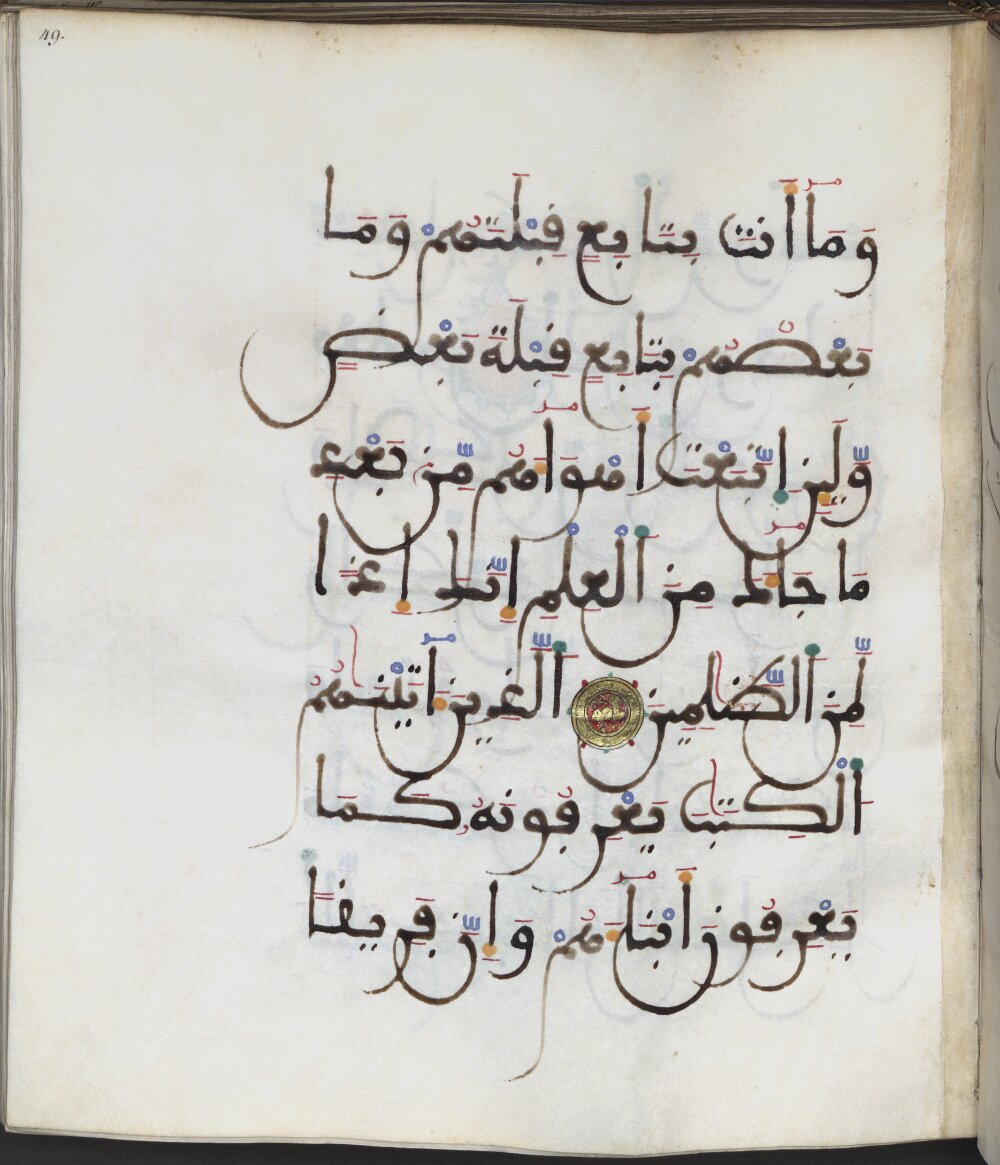 49.
وَمَآ أَنتَ بِتَابِعٍ قِبْلَتَهُمْ وَمَا
بَعْضُهُم بِتَابِعٍ قِبْلَةَ بَعْضٍ
وَّلَئِنِ اِتَّبَعْتَ أَهْوَآءَهُم مِّنۢ بَعْدِ
مَا جَآءَكَ مِنَ اَلْعِلْمِ إِنَّكَ إِذًا
لَّمِنَ اَلظَّٰلِمِينَ اَلَّذِينَ ءَاتَيْنَٰهُمُ
اُلْكِتَٰبَ يَعْرِفُونَهُۥ كَمَا
يَعْرِفُونَ أَبْنَآءَهُمْ وَإِنَّ فَرِيقًا